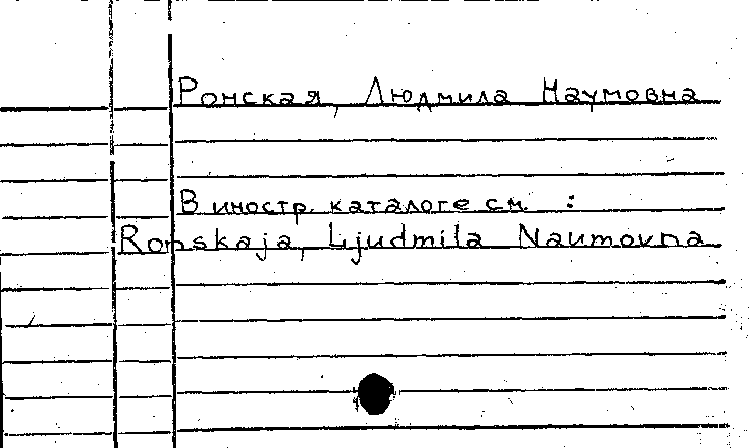 Ронская, Людмила Наумовна
В иностр. каталоге см. :
Ronskaja, Ljudmila Naumovna